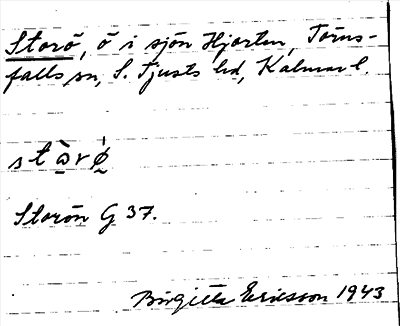 Storö, ö i sjön Hjorten, Törns-
falls sn, S. Tjusts hd, Kalmar l.
stòrǿ
Storön G 37.
Birgitta Ericsson 1943